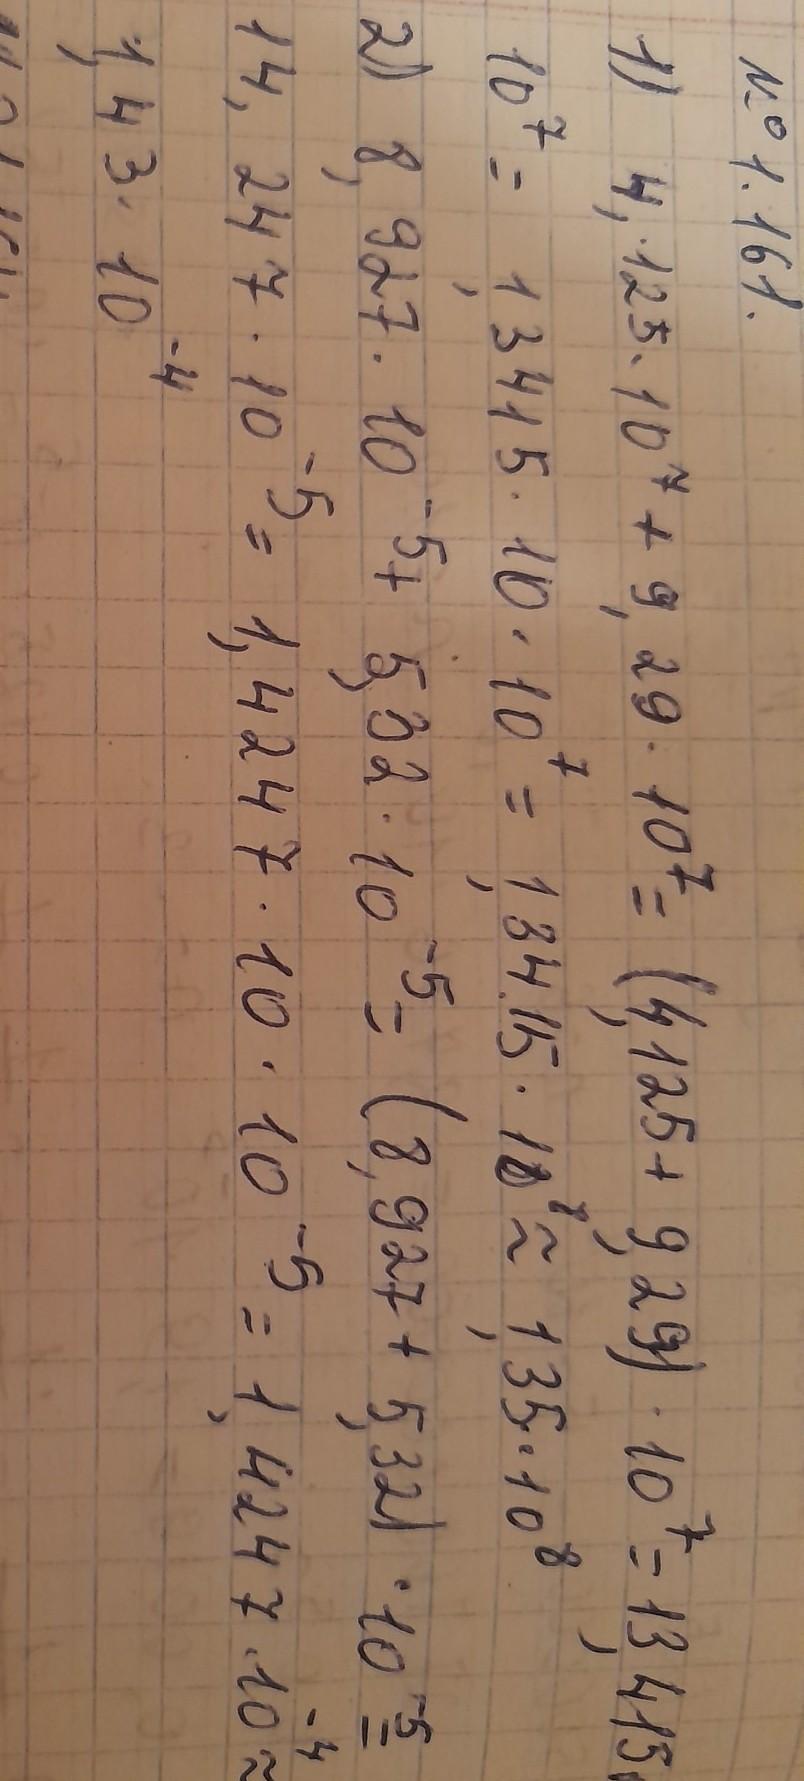 № 1.161.
1) 4,125·10⁷ + 9,29·10⁷ = (4,125 + 9,29)·10⁷ = 13,415·
10⁷ = 1,3415·10·10⁷ = 1,3415·10⁸ ≈ 1,35·10⁸
2) 8,927·10⁻⁵ + 5,32·10⁻⁵ = (8,927 + 5,32)·10⁻⁵ =
14,247·10⁻⁵ = 1,4247·10·10⁻⁵ = 1,4247·10⁻⁴ ≈
1,43·10⁻⁴